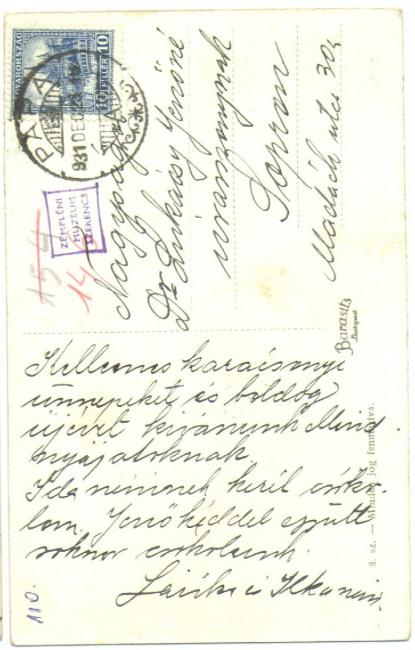 MAGYARORSZÁG
10 FILLÉR 10
PÁPA
931 DEC
ZEMPLÉNI
MUZEUM
SZERENCS
15
14
Nagyságos
Dr Lukácsy Jenőné
úrasszonynak
Sopron
Madách utca 30
Barasits
Budapest
Kellemes karácsonyi
ünnepeket és boldog
újévet kívánunk Mind-
nyájatoknak.
Ida néninek kezit csóko-
lom. Jenőkéddel együtt
sokszor csókolunk.
Sárika és Ilka néni
8. sz. — Minden jog fenntartva.
110.